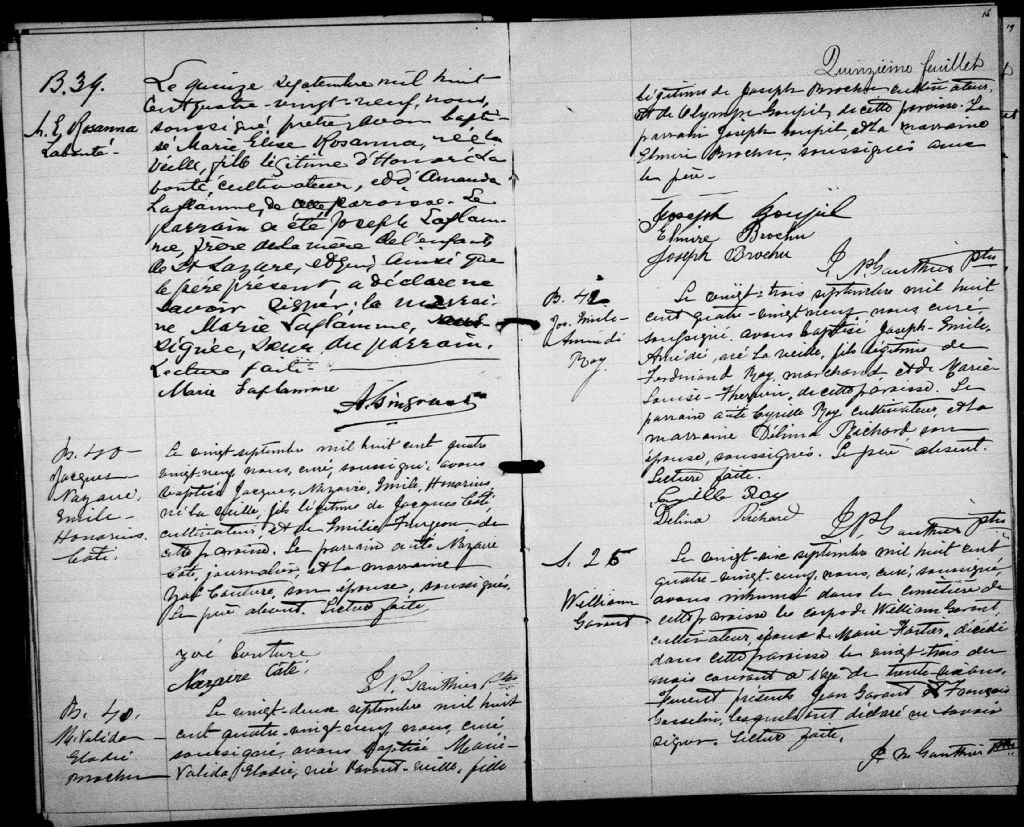 B. 39.
M. E. Rosanna
Labonté-
Le quinze septembre mil huit
cent quatre-vingt-neuf, nous,
soussigné, prêtre, avons bapti-
sé Marie Elise Rosanna, née la
veille, fille légitime d'Honoré La
bonté, cultivateur, et d'Amanda
Laflamme, de cette paroisse. Le
parrain a été Joseph Laflam-
me, frère de la mère de l'enfant
de St Lazare, et qui ainsi que
le père présent, a déclaré ne
savoir signer; la marrai
ne Marie Laflamme, sous-
signée, sœur du parrain.
Lecture faite.
Marie Laflamme
B. 40-
Jacques-
Nazaire,
Emile-
Honorius
Coté
Le vingt septembre mil huit cent quatre
vingt-neuf nous, curé, soussigné, avons
baptisé Jacques, Nazaire, Emile, Honorius,
né la veille, fils légitime de Jacques Côté,
cultivateur, et de Emilie Turgeon, de
cette paroisse. Le parrain a été Nazaire
Côté, journalier, et la marraine
Zoé Couture, son épouse, soussignés.
Le père absent. Lecture faite.
Zoé Couture
Nazaire Coté.
J. N. Gauthier Ptre
B. 40.
M. Valida-
Elodie
Brochu
Le vingt-deux septembre mil huit
cent quatre-vingt-neuf nous, curé
soussigné, avons baptisé Marie-
Valida, Elodie, née l'avant-veille, fille
15
19
Quinzième feuillet
légitime de Joseph Brochu cultivateur,
et de Olympe Goupil, de cette paroisse. Le
parrain Joseph Goupil, et la marraine
Elmire Brochu, soussignés avec
le père-
Joseph Goupil
Elmire Brochu
Joseph Brochu
J. N. Gauthier Ptre
B. 42
Jos. Emile-
Amédé
Roy
Le vingt-trois septembre mil huit
cent quatre-vingt-neuf nous curé
soussigné avons baptisé Joseph-Emile
Amédé, né la veille, fils légitime de
Ferdinand Roy, marchand et de Marie
Louise-Therrien, de cette paroisse. Le
parrain a été Cyrille Roy, cultivateur, et la
marraine Délima Richard son
épouse, soussignés. Le père absent.
Lecture faite.
Cyrille Roy
Délina Richard
J. N. Gauthier ptre
S. 25
William
Garant
Le vingt-six septembre mil huit cent
quatre-vingt-neuf, nous, curé, soussigné
avons inhumé dans le cimetière de
cette paroisse le corps de William Garant,
cultivateur, époux de Marie Fortier, décédé
dans cette paroisse le vingt-trois du
mois courant à l'age de trente-six ans.
Furent présents Jean Garant et François
Gosselin, lesquels ont déclaré ne savoir
signer. Lecture faite.
J. N. Gauthier Ptre